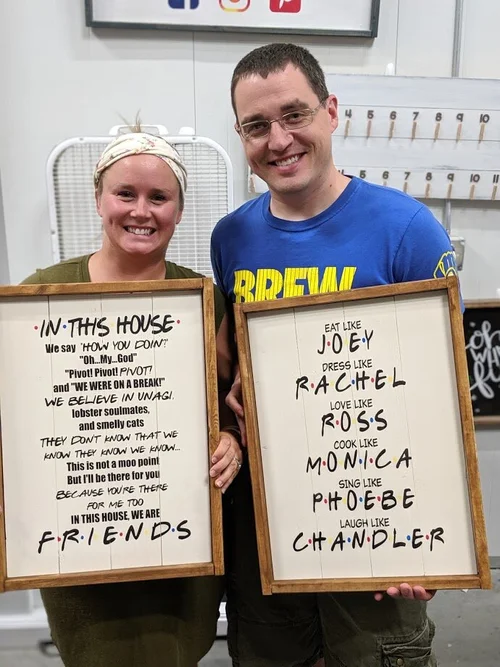 4 5 6 7 8 9 10
7 8 9 10 11 12
BREW
·IN·THIS HOUSE·
We say 'HOW YOU DOIN'?'
"Oh...My...God"
"Pivot! Pivot! PIVOT!
and "WE WERE ON A BREAK!"
WE BELIEVE IN UNAGI.
lobster soulmates,
and smelly cats
THEY DON'T KNOW THAT WE
KNOW THEY KNOW WE KNOW...
This is not a moo point
But I'll be there for you
BECAUSE YOU'RE THERE
FOR ME TOO
IN THIS HOUSE, WE ARE
F·R·I·E·N·D·S
EAT LIKE
J·O·E·Y
DRESS LIKE
R·A·C·H·E·L
LOVE LIKE
R·O·S·S
COOK LIKE
M·O·N·I·C·A
SING LIKE
P·H·O·E·B·E
LAUGH LIKE
C·H·A·N·D·L·E·R